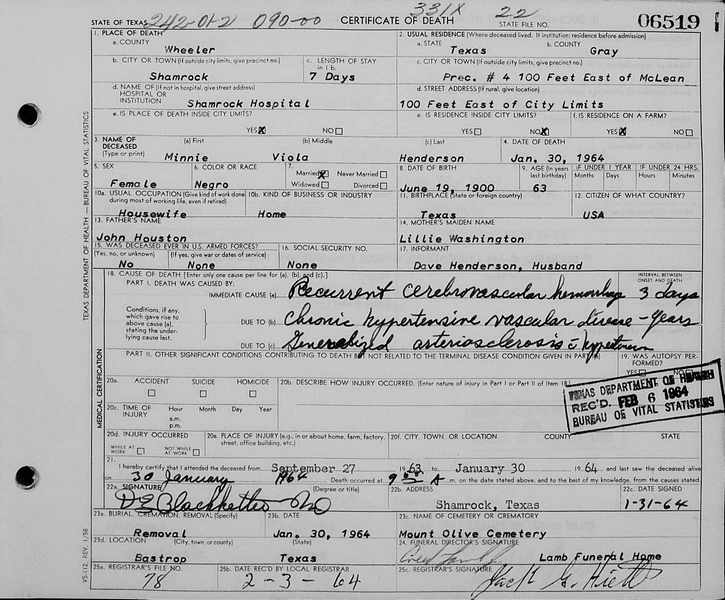 STATE OF TEXAS 242-01-2 090-00 CERTIFICATE OF DEATH 331X 22 STATE FILE NO. 06519
1. PLACE OF DEATH 2. USUAL RESIDENCE (Where deceased lived. If institution: residence before admission)
a. COUNTY Wheeler a. STATE Texas b. COUNTY Gray
b. CITY OR TOWN (If outside city limits, give precinct no.) c. LENGTH OF STAY in 1 b. c. CITY OR TOWN (If outside city limits, give precinct no.)
Shamrock 7 Days Prec. # 4 100 Feet East of McLean
d. NAME OF (If not in hospital, give street address) HOSPITAL OR INSTITUTION d. STREET ADDRESS (If rural, give location)
Shamrock Hospital 100 Feet East of City Limits
e. IS PLACE OF DEATH INSIDE CITY LIMITS? e. IS RESIDENCE INSIDE CITY LIMITS? f. IS RESIDENCE ON A FARM?
YES X NO YES NO X YES X NO
3. NAME OF DECEASED (Type or print) (a) First (b) Middle (c) Last 4. DATE OF DEATH
Minnie Viola Henderson Jan. 30, 1964
5. SEX 6. COLOR OR RACE 7. Married X Never Married Widowed Divorced 8. DATE OF BIRTH 9. AGE (In years last birthday) IF UNDER 1 YEAR Months Days IF UNDER 24 HRS. Hours Minutes
Female Negro June 19, 1900 63
10a. USUAL OCCUPATION (Give kind of work done during most of working life, even if retired) 10b. KIND OF BUSINESS OR INDUSTRY 11. BIRTHPLACE (State or foreign country) 12. CITIZEN OF WHAT COUNTRY?
Housewife Home Texas USA
13. FATHER'S NAME 14. MOTHER'S MAIDEN NAME
John Houston Lillie Washington
15. WAS DECEASED EVER IN U.S. ARMED FORCES? (Yes, no, or unknown) (If yes, give war or dates of service) 16. SOCIAL SECURITY NO. 17. INFORMANT
No None None Dave Henderson, Husband
18. CAUSE OF DEATH [Enter only one cause per line for (a), (b), and (c).] INTERVAL BETWEEN ONSET AND DEATH
PART I. DEATH WAS CAUSED BY:
IMMEDIATE CAUSE (a) Recurrent cerebrovascular hemorrhage 3 days
Conditions, if any, which gave rise to above cause (a), stating the underlying cause last.
DUE TO (b) Chronic hypertensive vascular disease - years
DUE TO (c) Generalized arteriosclerosis
PART II. OTHER SIGNIFICANT CONDITIONS CONTRIBUTING TO DEATH BUT NOT RELATED TO THE TERMINAL DISEASE CONDITION GIVEN IN PART I(a) 19. WAS AUTOPSY PERFORMED?
YES NO
20a. ACCIDENT SUICIDE HOMICIDE 20b. DESCRIBE HOW INJURY OCCURRED. (Enter nature of injury in Part I or Part II of Item 18.)
TEXAS DEPARTMENT OF HEALTH
REC'D. FEB 6 1964
BUREAU OF VITAL STATISTICS
20c. TIME OF INJURY Hour Month Day Year a.m. p.m.
20d. INJURY OCCURRED WHILE AT WORK NOT WHILE AT WORK 20e. PLACE OF INJURY (e.g., in or about home, farm, factory, street, office building, etc.) 20f. CITY, TOWN, OR LOCATION COUNTY STATE
21. I hereby certify that I attended the deceased from September 27 1963 to January 30 1964, and last saw the deceased alive
on 30 January 1964 Death occurred at 9 A m. on the date stated above, and to the best of my knowledge, from the causes stated.
22a. SIGNATURE (Degree or title) 22b. ADDRESS 22c. DATE SIGNED
D E Blackketter MD Shamrock, Texas 1-31-64
23a. BURIAL, CREMATION, REMOVAL (Specify) 23b. DATE 23c. NAME OF CEMETERY OR CREMATORY
Removal Jan. 30, 1964 Mount Olive Cemetery
23d. LOCATION (City, town, or county) (State) 24. FUNERAL DIRECTOR'S SIGNATURE
Bastrop Texas Lamb Funeral Home
25a. REGISTRAR'S FILE NO. 25b. DATE REC'D BY LOCAL REGISTRAR 25c. REGISTRAR'S SIGNATURE
78 2-3-64 Jack G. Hiett
TEXAS DEPARTMENT OF HEALTH — BUREAU OF VITAL STATISTICS
MEDICAL CERTIFICATION
VS-112 REV. 1/58